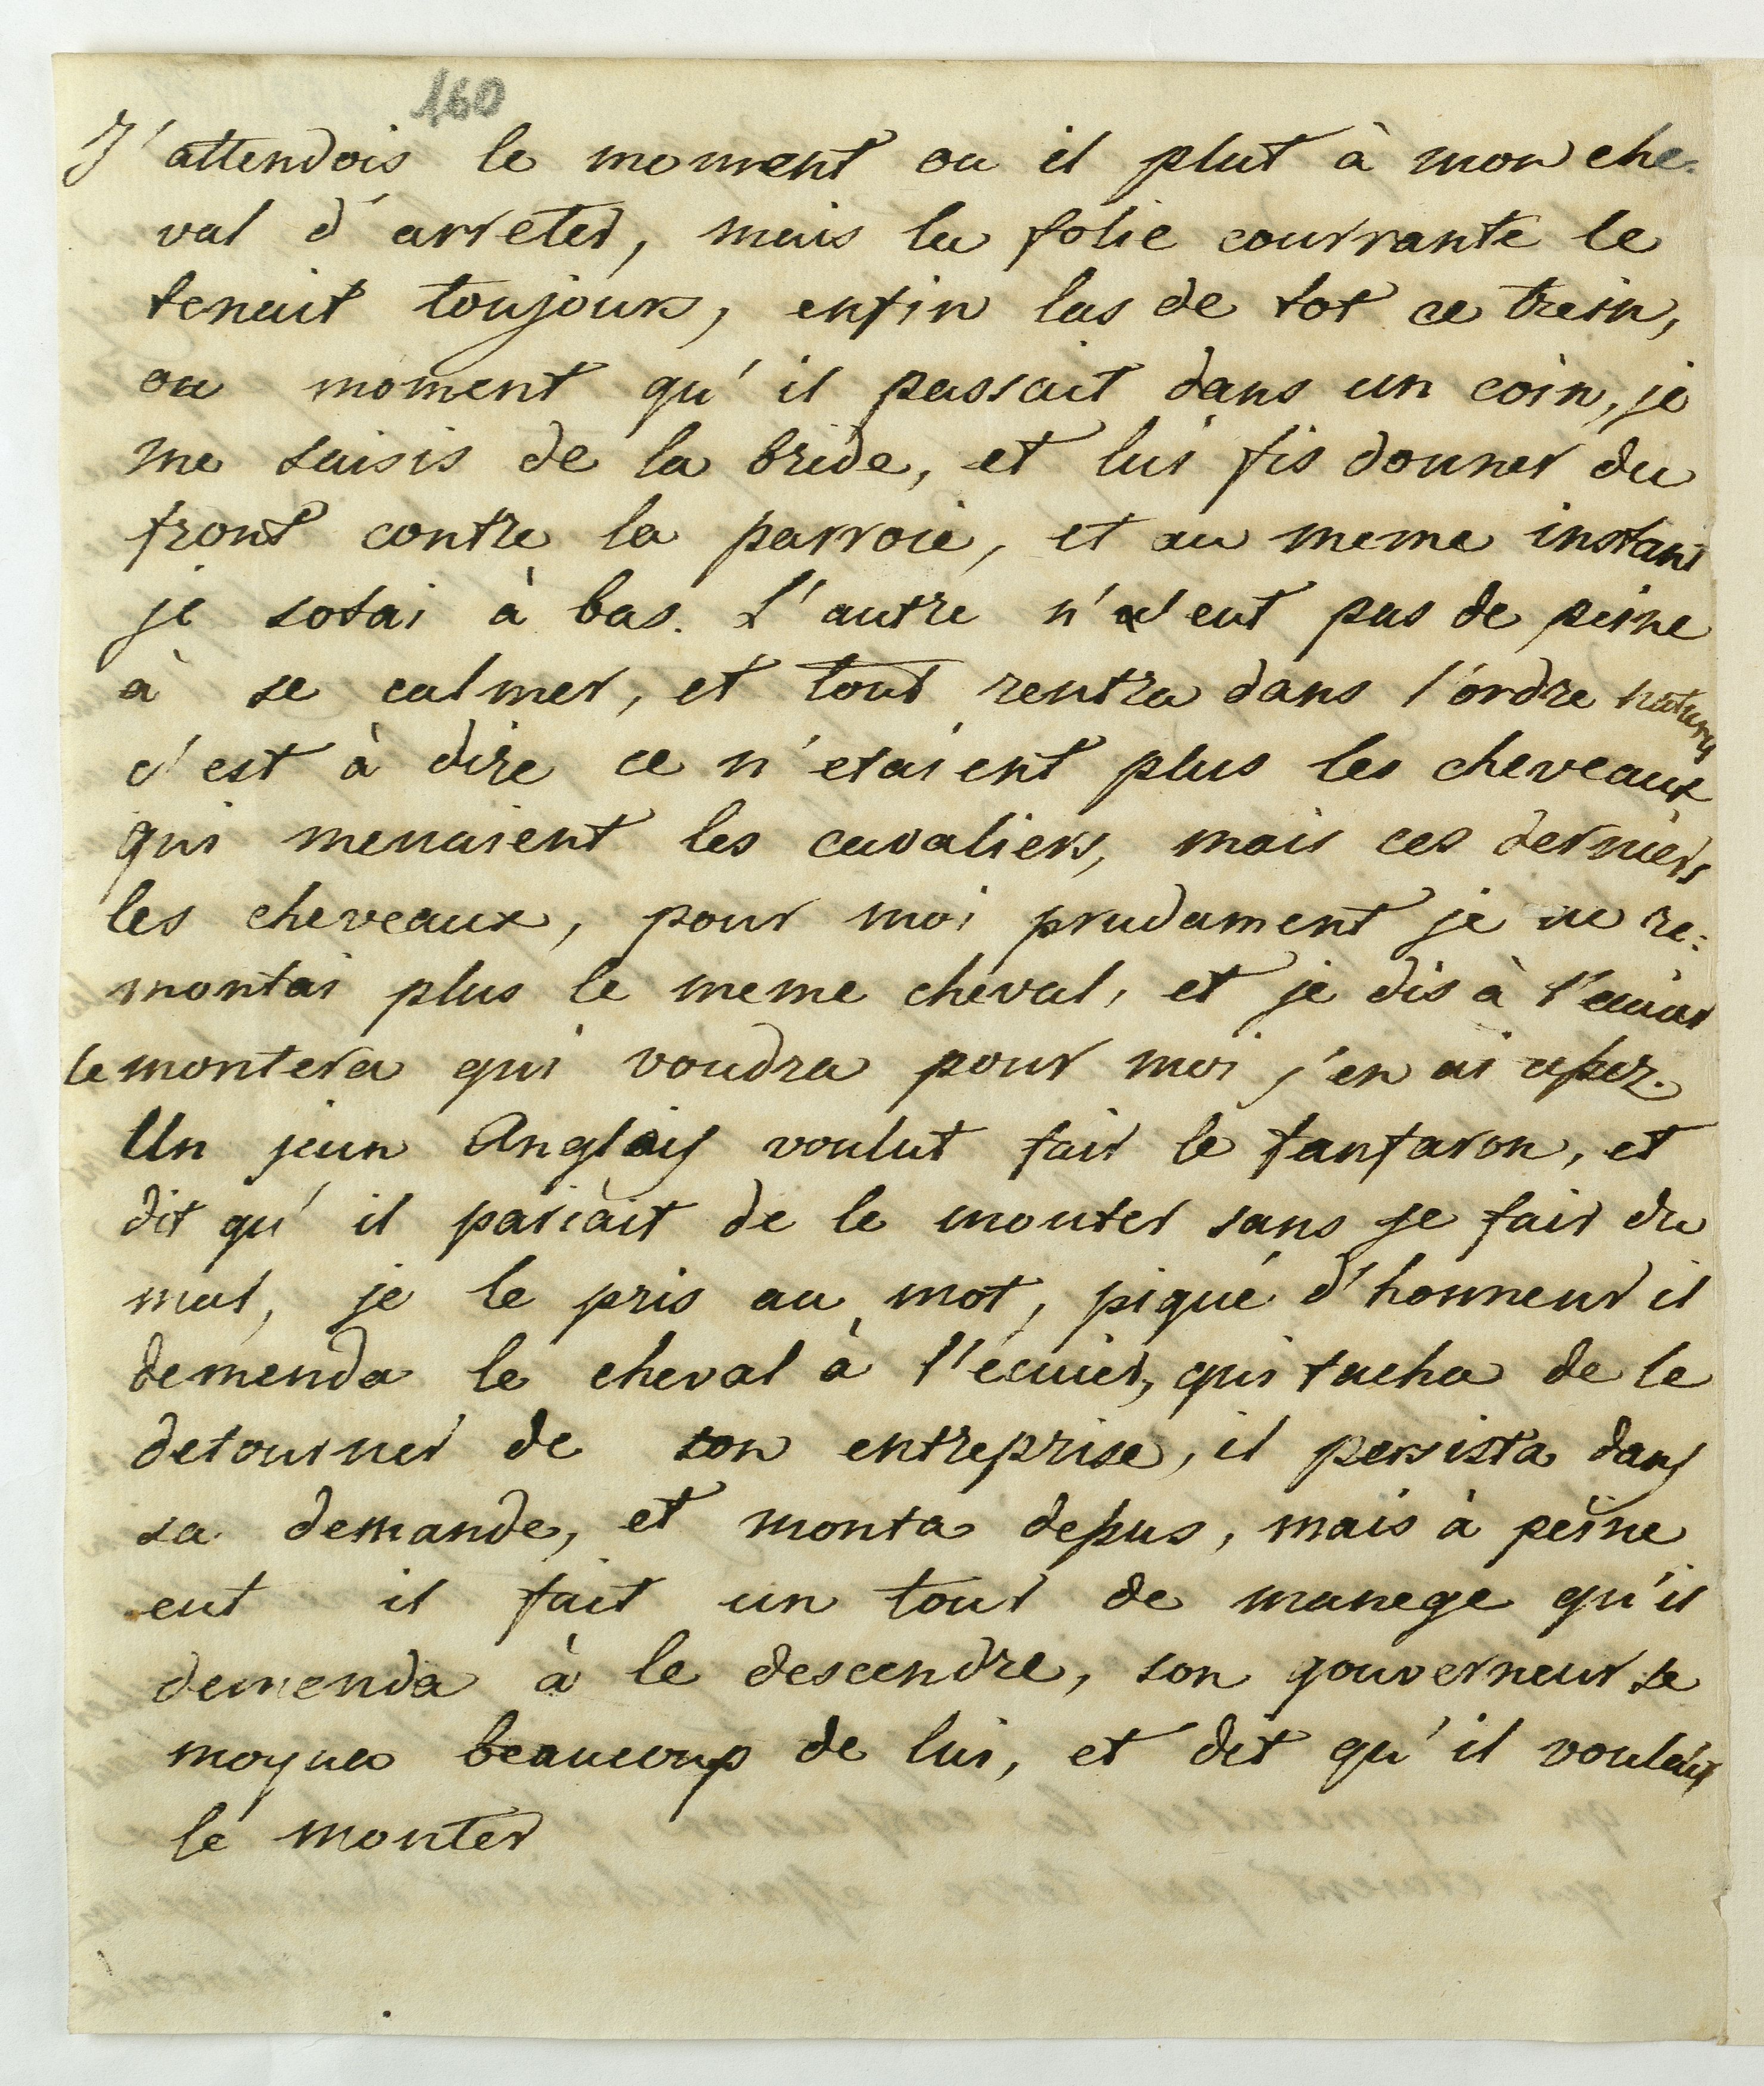 160
J'attendois le moment ou il plut à mon che-
val d'arreter, mais la folie courrante le
tenait toujours, enfin las de tot ce trein,
au moment qu'il passait dans un coin, je
me saisis de la bride, et lui fis donner du
front contre la parroie, et au meme instant
je sotai à bas. L'autre n'eut pas de peine
à se calmer, et tout rentra dans l'ordre
c'est à dire ce n'etaient plus les cheveaux
qui menaient les cavaliers, mais ces derniers
les cheveaux, pour moi prudament je ne re:
montai plus le meme cheval, et je dis à l'ecuier
le montera qui voudra pour moi j'en ai assez.
Un jeun Anglais voulut fair le fanfaron, et
dit qu'il pariait de le monter sans se fair du
mal, je le pris au mot, piqué d'honneur il
demenda le cheval à l'ecuier, qui tacha de le
detourner de son entreprise, il persista dans
sa demande, et monta depus, mais à peine
eut il fait un tour de manege qu'il
demenda à le descendre, son gouverneur se
moqua beaucoup de lui, et dit qu'il voulait
le monter